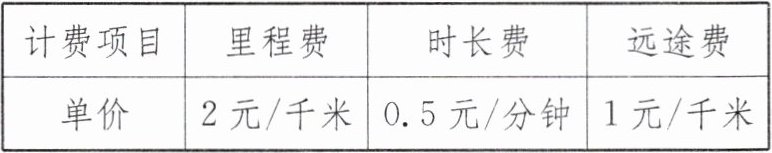 计费项目 里程费 时长费 远途费
单价 2元/千米 0.5元/分钟 1元/千米